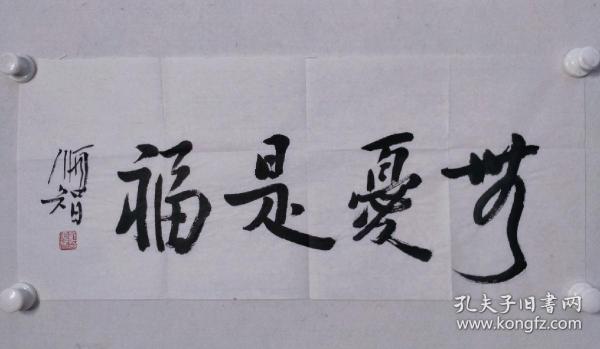 無憂是福
順智
孔夫子旧書网
www.kongfz.com